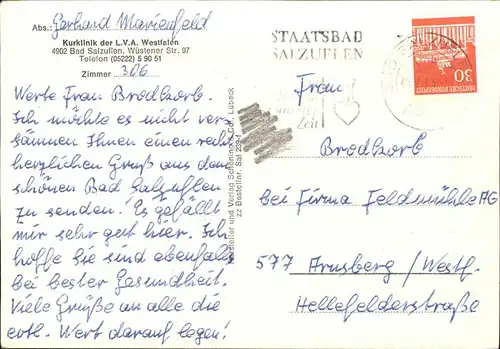 Abs.: Gerhard Marienfeld
Kurklinik der L.V.A. Westfalen
4902 Bad Salzuflen, Wüstener Str. 97
Telefon (05222) 5 90 51
Zimmer 306
Werte Frau Brodkorb.
Ich möchte es nicht ver-
säumen Ihnen einen recht
herzlichen Gruß aus dem
schönen Bad Salzuflen
zu senden. Es gefällt
mir sehr gut hier. Ich
hoffe Sie sind ebenfalls
bei bester Gesundheit.
Viele Grüße an alle die
evtl. Wert darauf legen!
Hersteller und Verlag Schöning & Co., Lübeck
STAATSBAD
SALZUFLEN
Zeit
30
DEUTSCHE BUNDESPOST
Frau
Brodkorb
bei Firma Feldmühle AG
577 Arnsberg/Westf.
Hellefelderstraße